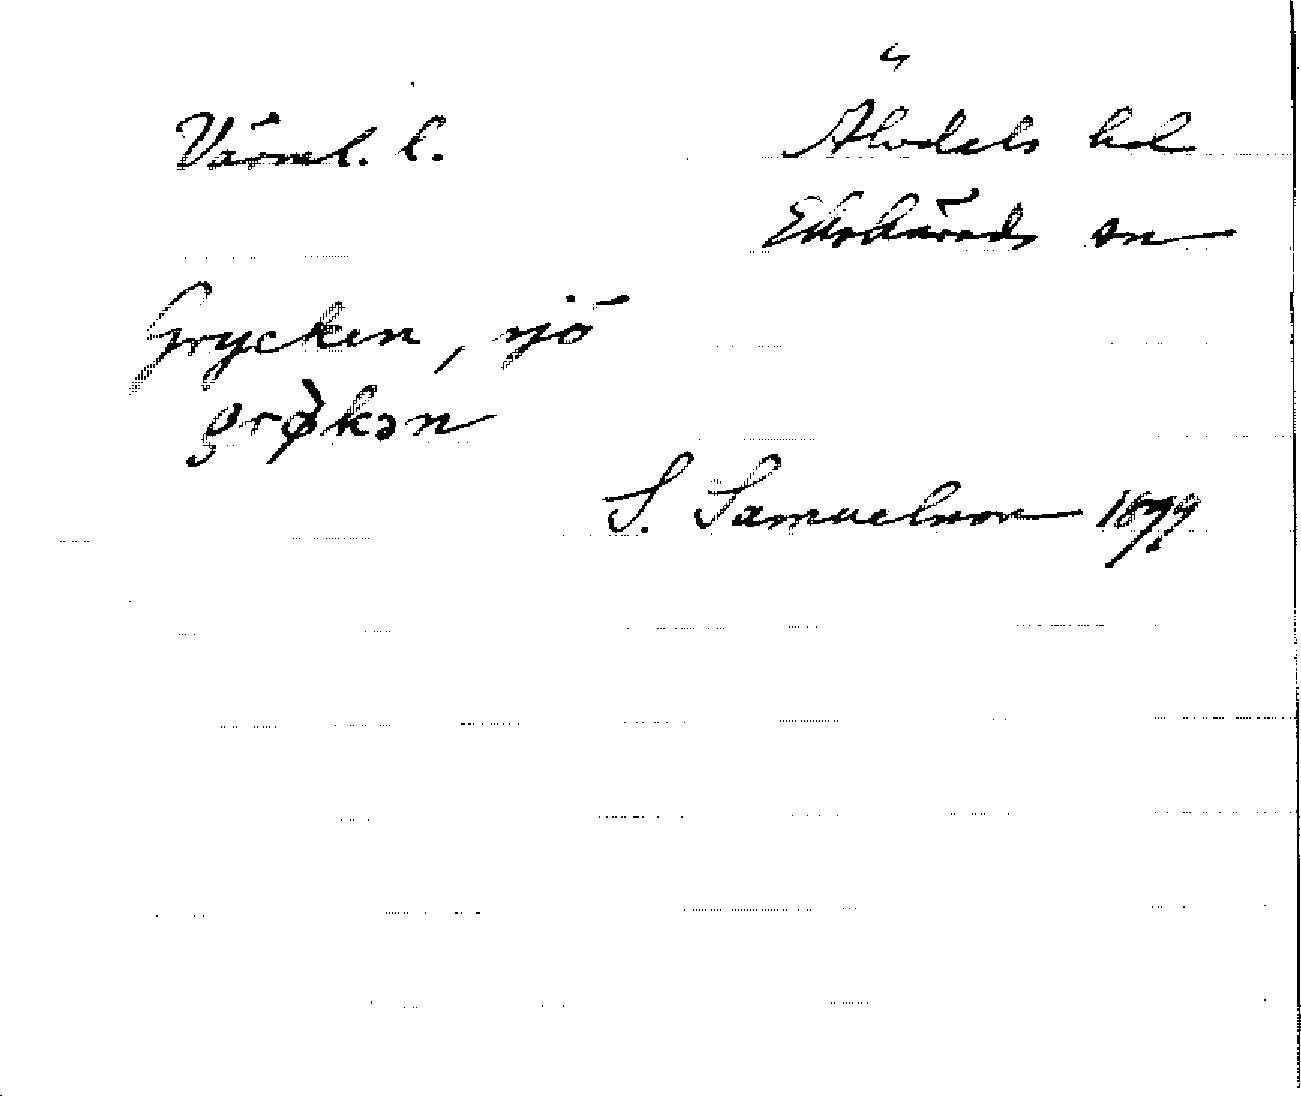 Värml. l.
Älvdals hd
Ekshärads sn
Grycken, sjö
grø̀kən
S. Samuelsson 1899